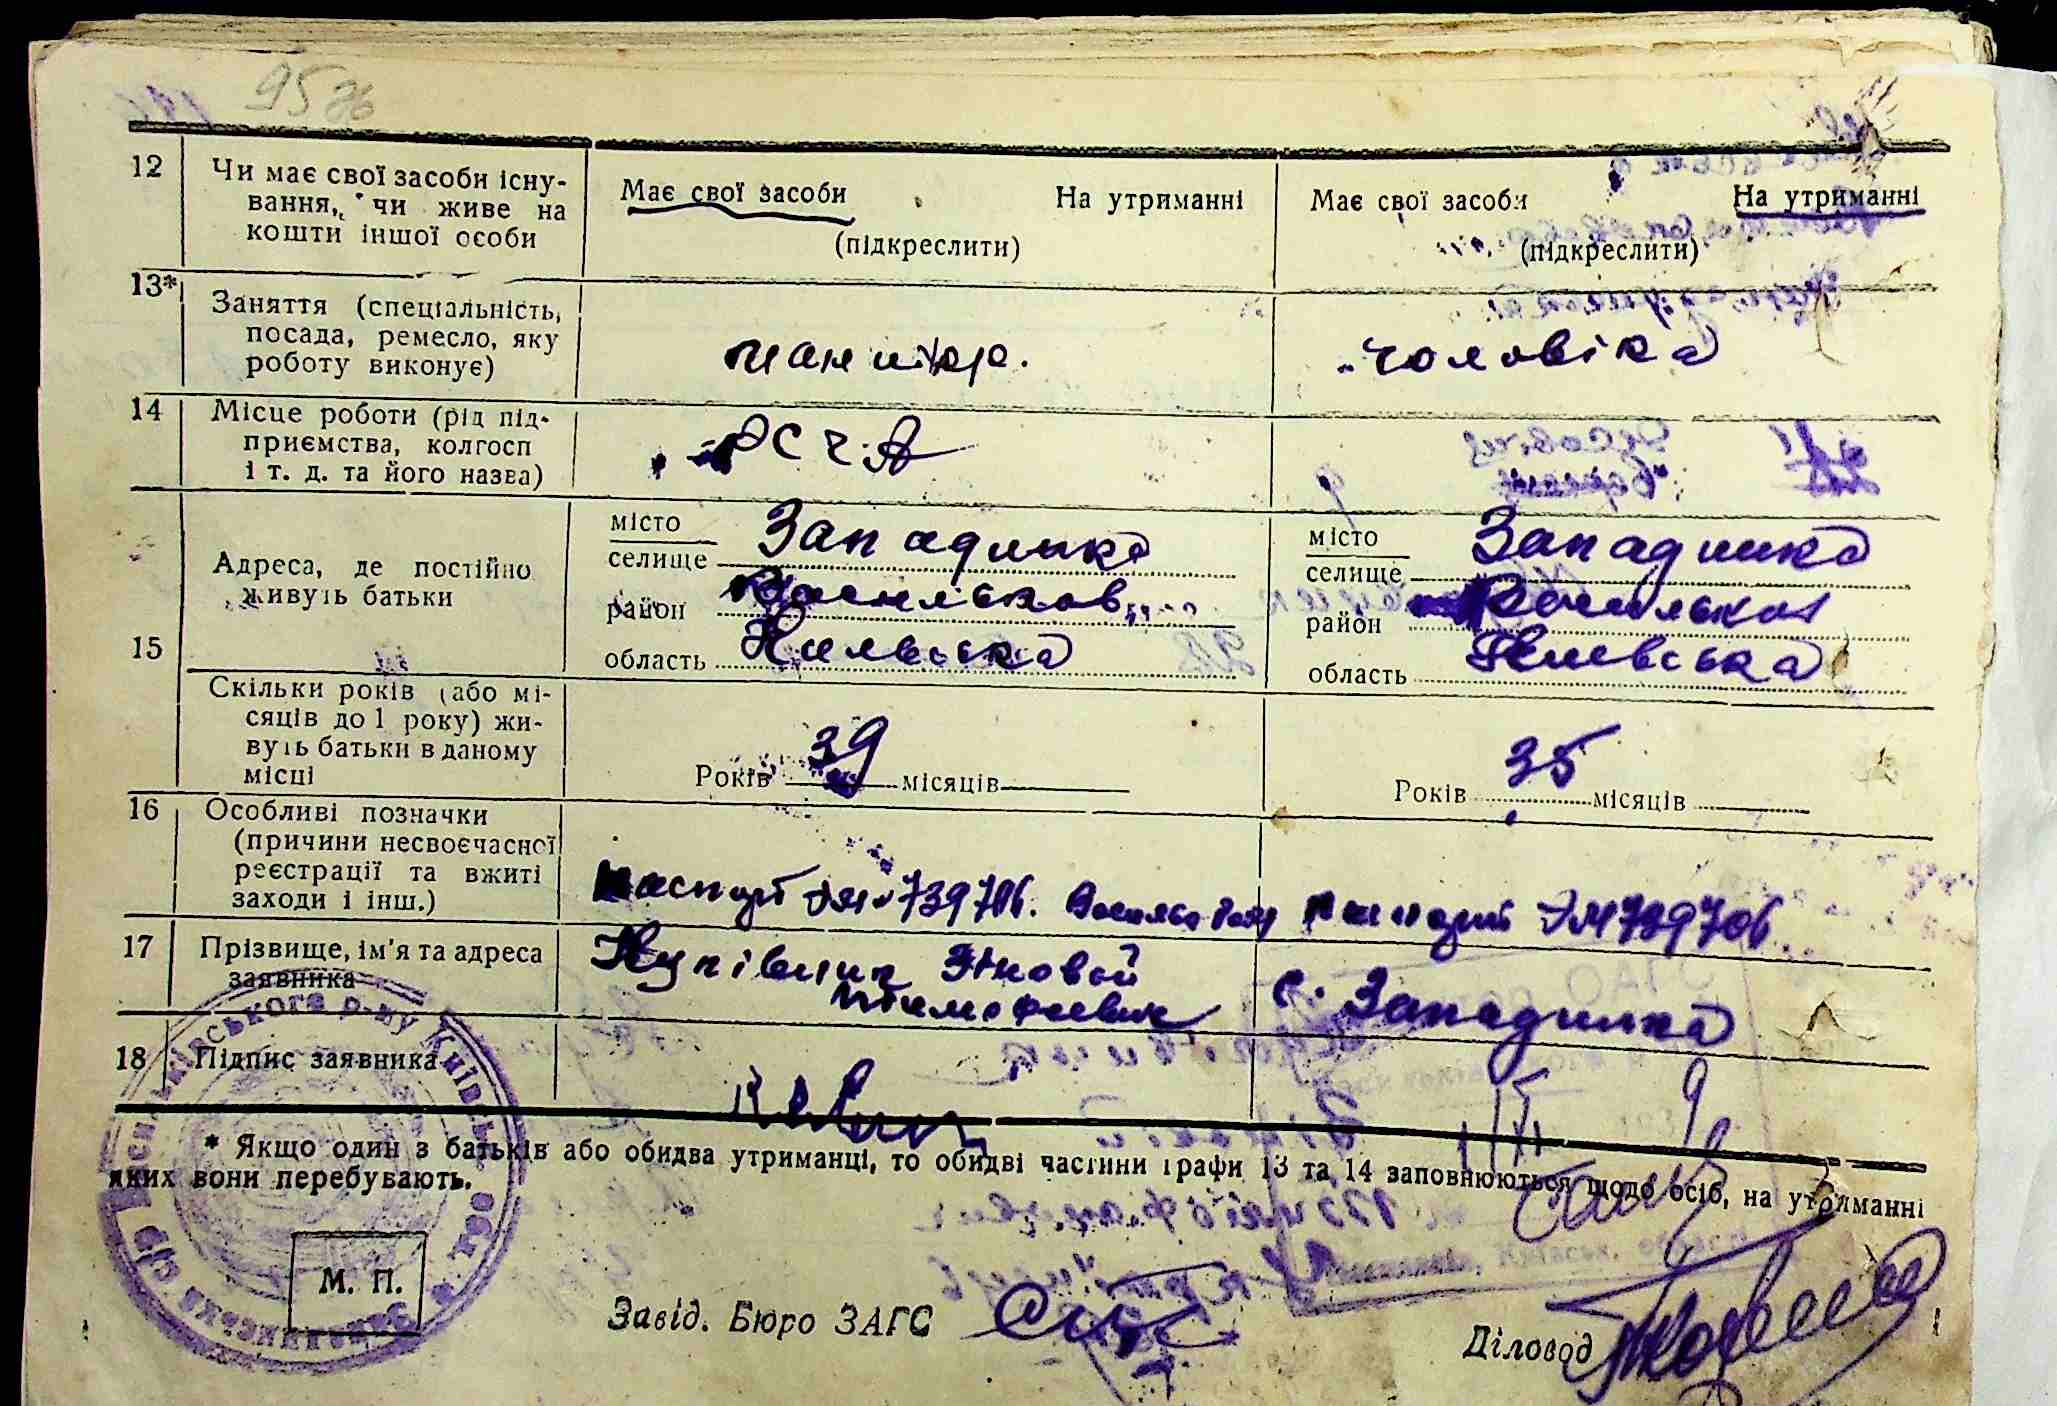 95
12 Чи має свої засоби існу-
вання, чи живе на
кошти іншої особи
Має свої засоби На утриманні
(підкреслити)
Має свої засоби На утриманні
(підкреслити)
13* Заняття (спеціальність,
посада, ремесло, яку
роботу виконує)
чоловіка
14 Місце роботи (рід під-
приємства, колгосп
і т. д. та його назва)
РСЧА
15 Адреса, де постійно
живуть батьки
місто
селище Западинка
район Васильков
область Київська
місто
селище Западинка
район Васильков
область Київська
Скільки років (або мі-
сяців до 1 року) жи-
вуть батьки в даному
місці
Років 39 місяців
Років 35 місяців
16 Особливі позначки
(причини несвоєчасної
реєстрації та вжиті
заходи і інш.)
паспорт 739706. паспорт ЭМ 739706
17 Прізвище, ім'я та адреса
заявника
Зіновій
Тимофеевич
с. Западинка
18 Підпис заявника
* Якщо один з батьків або обидва утриманці, то обидві частини графи 13 та 14 заповнюються щодо осіб, на утриманні
яких вони перебувають.
М. П.
Завід. Бюро ЗАГС
Діловод